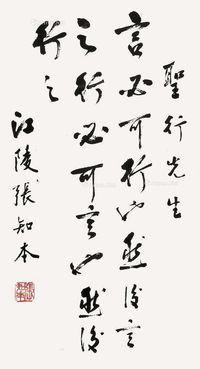 聖行先生
言必可行也然後言
之行必可言也然後
行之
江陵張知本